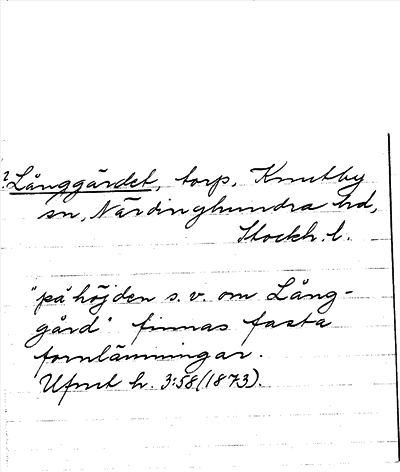 ? Långgärdet, torp, Knutby
sn, Närdinghundra hd,
Stockh. l.
"på höjden s.v. om Lång-
gård" finnas fasta
fornlämningar.
Ufmt h. 3:58 (1873).